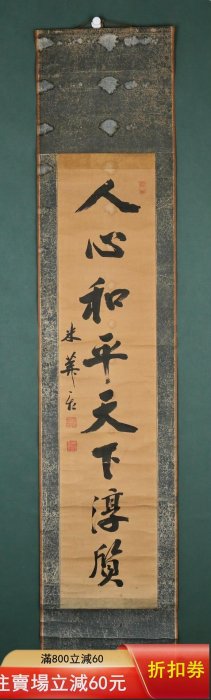 人心和平天下淳質
米葊
滿800立減60
折扣券
住賣場立減60元